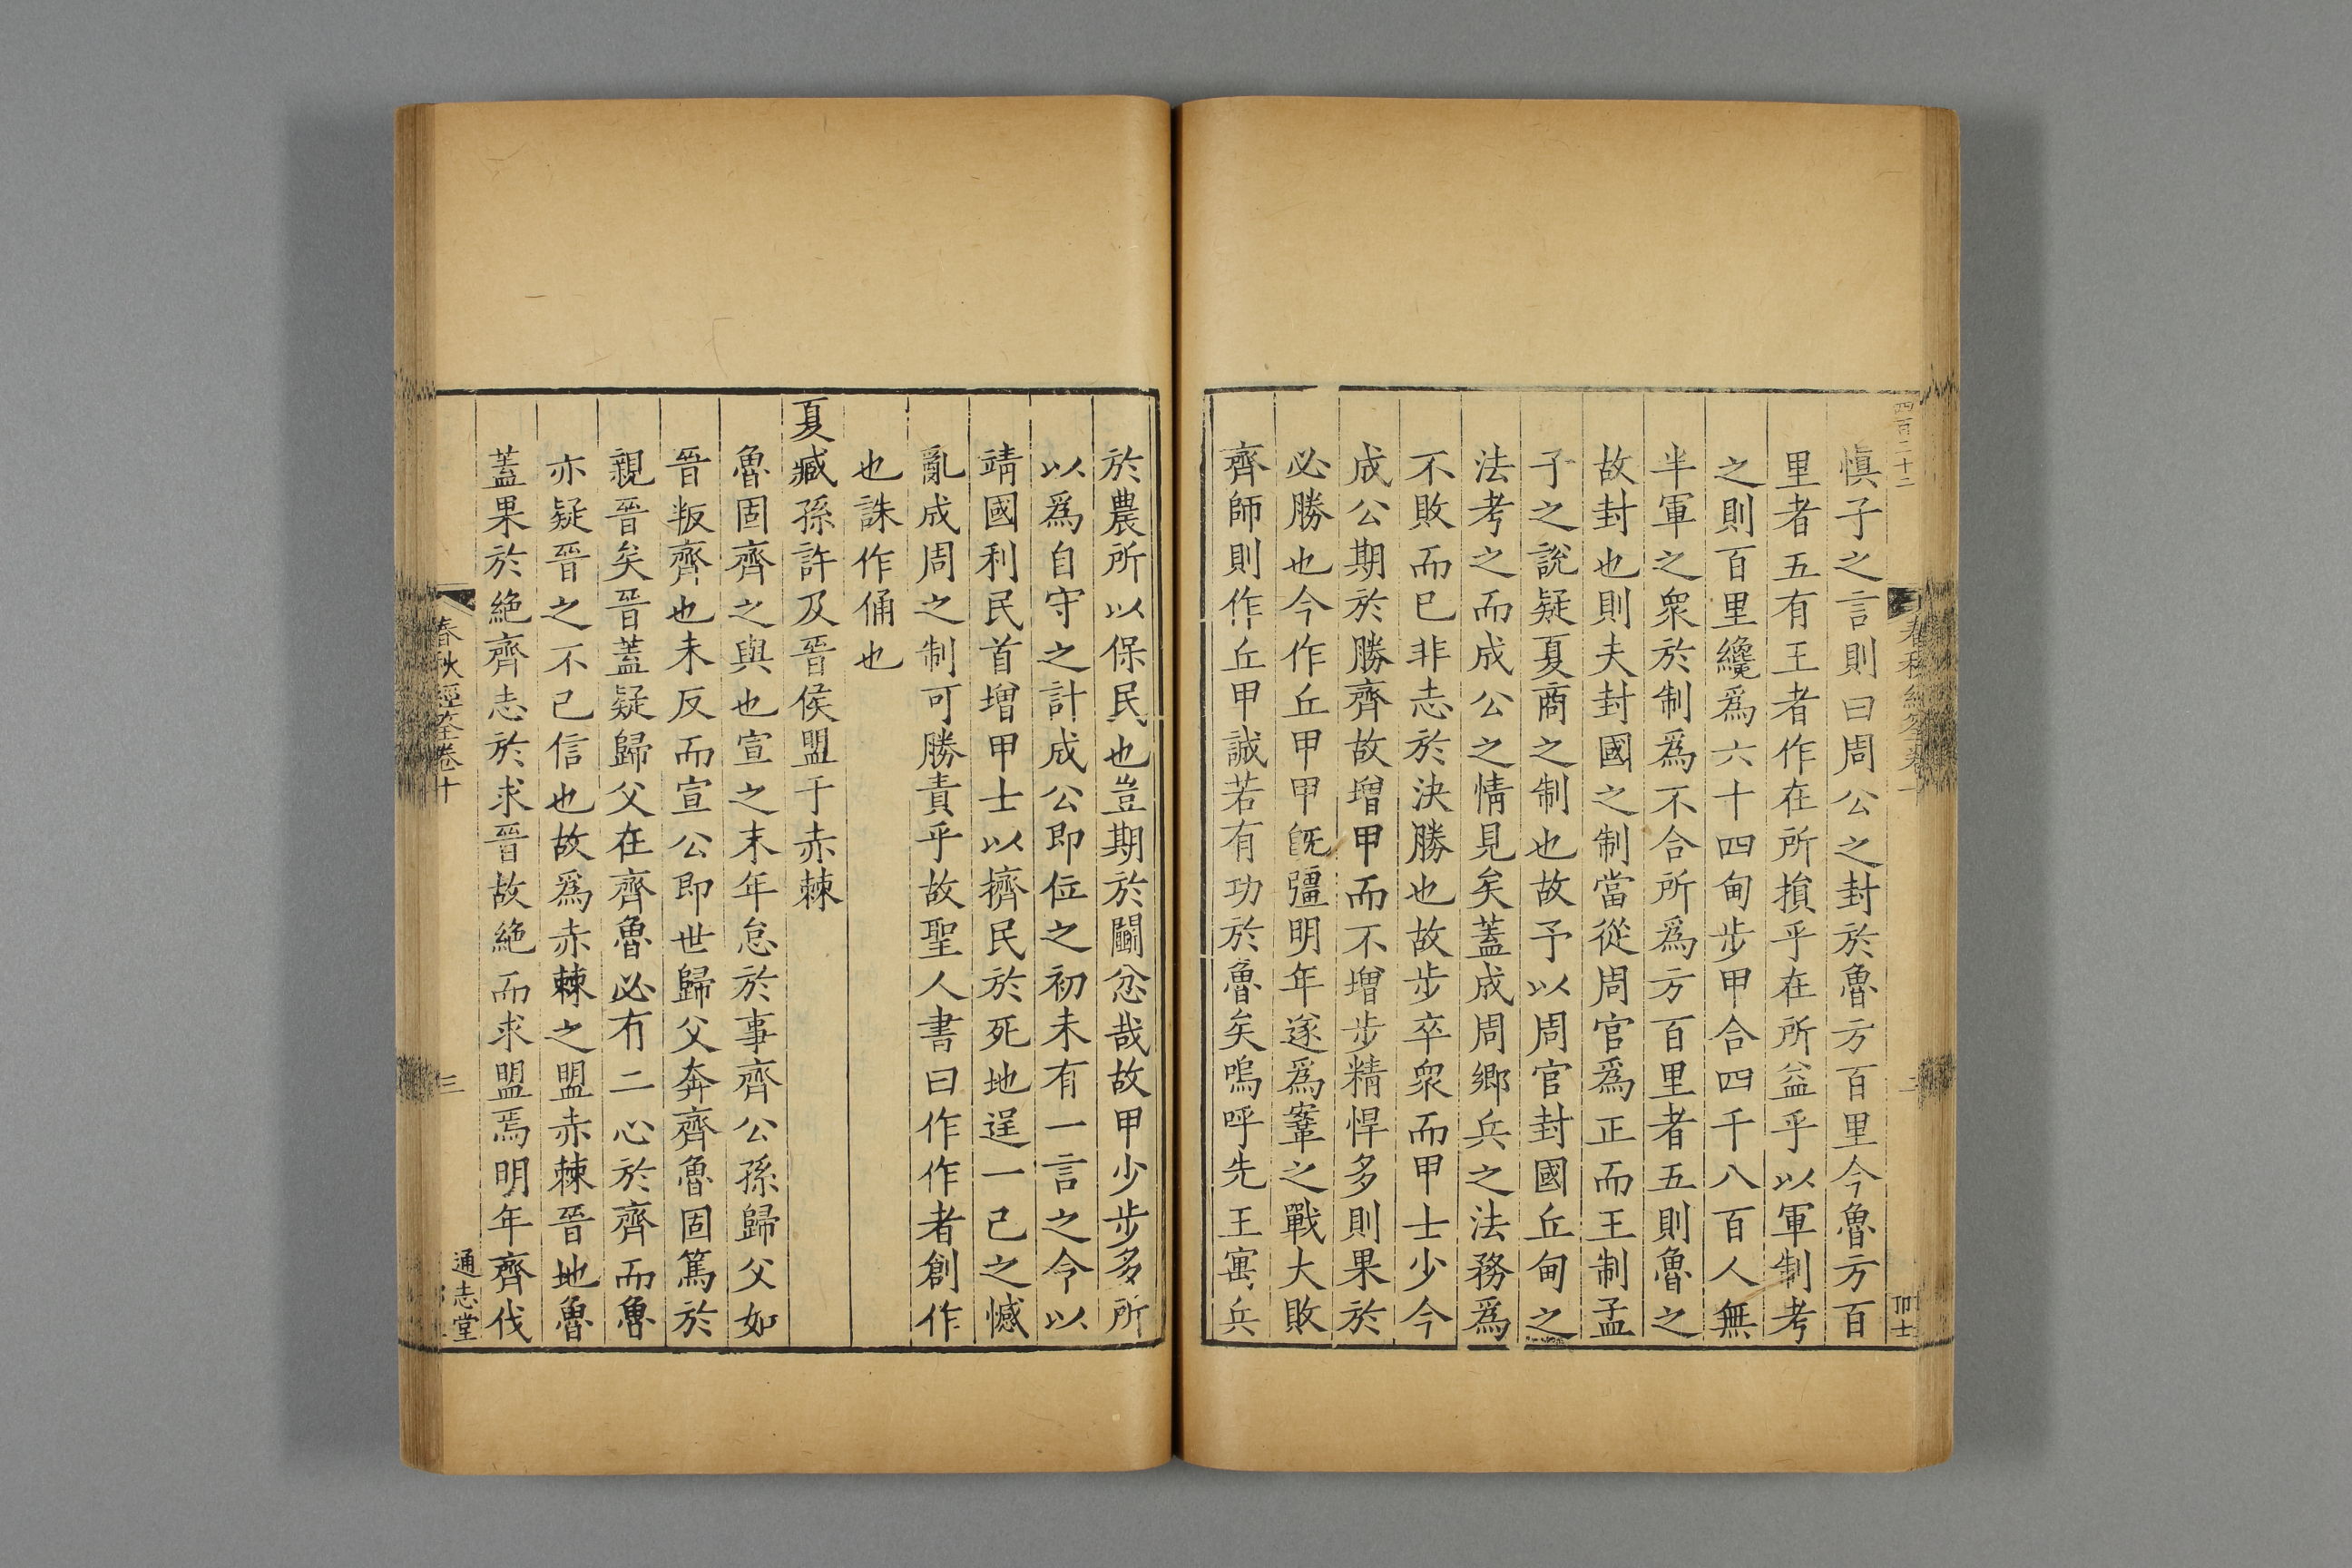 四百二十二
春秋經筌卷十
二
慎子之言則曰周公之封於魯方百里今魯方百
里者五有王者作在所損乎在所益乎以軍制考
之則百里纔爲六十四甸步甲合四千八百人無
半軍之衆於制爲不合所爲方百里者五則魯之
故封也則夫封國之制當從周官爲正而王制孟
子之說疑夏商之制也故予以周官封國丘甸之
法考之而成公之情見矣蓋成周鄉兵之法務爲
不敗而已非志於決勝也故步卒衆而甲士少今
成公期於勝齊故增甲而不增步精悍多則果於
必勝也今作丘甲甲旣彊明年遂爲鞌之戰大敗
齊師則作丘甲誠若有功於魯矣嗚呼先王寓兵
於農所以保民也豈期於鬭忿哉故甲少步多所
以爲自守之計成公即位之初未有一言之令以
靖國利民首增甲士以擠民於死地逞一己之憾
亂成周之制可勝責乎故聖人書曰作作者創作
也誅作俑也
夏臧孫許及晉侯盟于赤棘
魯固齊之與也宣之末年怠於事齊公孫歸父如
晉叛齊也未反而宣公即世歸父奔齊魯固篤於
親晉矣晉蓋疑歸父在齊魯必有二心於齊而魯
亦疑晉之不已信也故爲赤棘之盟赤棘晉地魯
蓋果於絶齊志於求晉故絶而求盟焉明年齊伐
春秋經筌卷十
三
通志堂